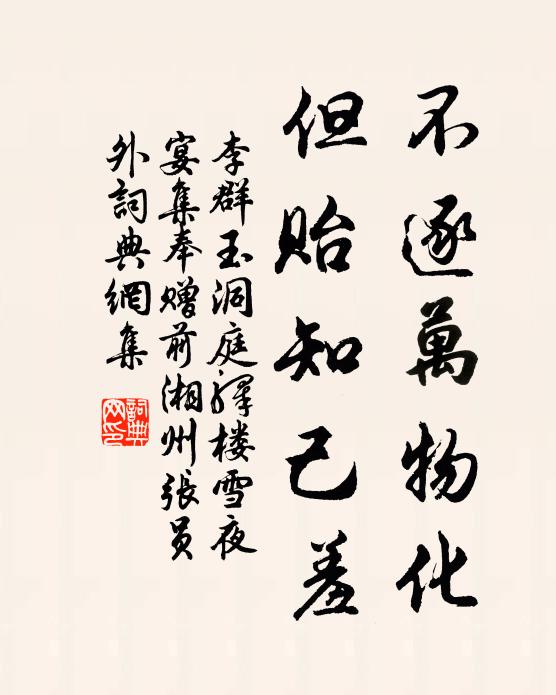 不逐萬物化
但貽知己羞
李群玉洞庭驛楼雪夜
宴集奉贈前湘州張員
外詞典網集
詞典網印